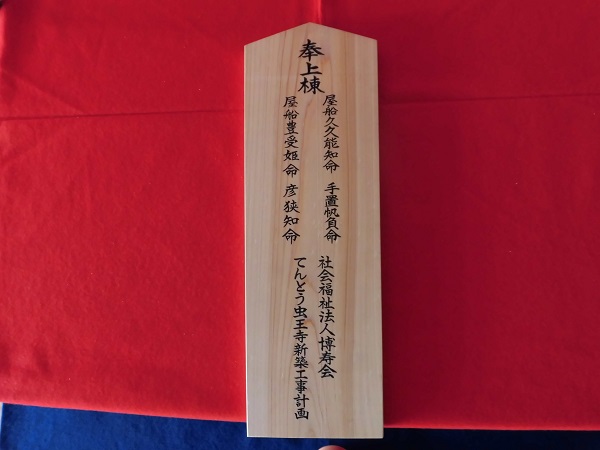 奉上棟
屋船久久能知命 手置帆負命
屋船豊受姫命 彦狭知命
社会福祉法人博寿会
てんとう虫王寺新築工事計画